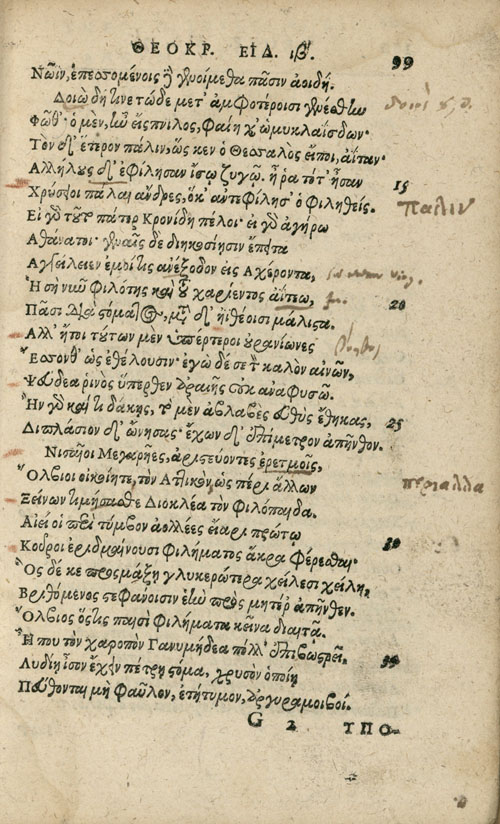 ΘΕΟΚΡ. ΕΙΔ. ιβ. 99
Νῶϊν, ἐπεσσομένοις δὲ γενοίμεθα πᾶσιν ἀοιδή.
Δοιὼ δή τινε τώδε μετ' ἀμφοτέροισι γενέσθην
Φῶθ'· ὁ μὲν, ἦν εἴσπνιλος, φαίη χ' ὡμυκλαΐσδων·
Τὸν δ' ἕτερον πάλιν, ὥς κεν ὁ Θεσσαλὸς εἴποι, ἀΐταν·
Ἀλλήλους δ' ἐφίλησαν ἴσῳ ζυγῷ. ἦ ῥα τότ' ἦσαν 15
Χρύσειοι πάλαι ἄνδρες, ὅκ' ἀντεφίλησ' ὁ φιληθείς.
παλιν
Εἰ γὰρ τοῦτο πάτερ Κρονίδη πέλοι· εἰ γὰρ ἀγήρω
Ἀθάνατοι· γενεαῖς δὲ διηκοσίῃσιν ἔπειτα
Ἀγγείλειεν ἐμοί τις ἀνέξοδον εἰς Ἀχέροντα,
Ἡ σὴ νῦν φιλότης καὶ τοῦ χαρίεντος ἀΐτεω, 20
Πᾶσι διὰ στόματος, μετὰ δ' ἠϊθέοισι μάλιστα.
Ἀλλ' ἤτοι τούτων μὲν ὑπέρτεροι οὐρανίωνες
Ἔσσονθ' ὡς ἐθέλουσιν· ἐγὼ δέ σε τὸν καλὸν αἰνῶν,
Ψεύδεα ῥινὸς ὕπερθεν ἀραιῆς οὐκ ἀναφυσῶ.
Ἢν γὰρ καί τι δάκῃς, τὸ μὲν ἀβλαβὲς εὐθὺς ἔθηκας, 25
Διπλάσιον δ' ὤνησας· ἔχων δ' ἐπίμετρον ἀπῆνθον.
Νισαῖοι Μεγαρῆες, ἀριστεύοντες ἐρετμοῖς,
Ὄλβιοι οἰκοίητε, τὸν Ἀττικὸν ὡς πέρι ἄλλων
περιαλλα
Ξείνων τιμήσασθε Διοκλέα τὸν φιλόπαιδα.
Αἰεί οἱ περὶ τύμβον ἀολλέες εἴαρι πρώτῳ 30
Κοῦροι ἐριδμαίνουσι φιλήματος ἄκρα φέρεσθαι·
Ὃς δέ κε προσμάξῃ γλυκερώτερα χείλεσι χείλη,
Βριθόμενος στεφάνοισιν ἑὴν πρὸς μητέρ' ἀπῆνθεν.
Ὄλβιος ὅστις παισὶ φιλήματα κεῖνα διαιτᾷ.
Ἦ που τὸν χαροπὸν Γανυμήδεα πόλλ' ἐπιβωστρεῖ, 35
Λυδίῃ ἶσον ἔχειν πέτρῃ στόμα, χρυσὸν ὁποίῃ
Πεύθονται μὴ φαῦλον, ἐτήτυμον, ἀργυραμοιβοί.
G 2 ΥΠΟ-